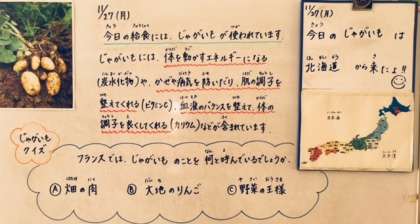 11/27(月)
今日の給食には、じゃがいもが使われています。
じゃがいもには、体を動かすエネルギーになる
(炭水化物)や、かぜや病気を防いだり、肌の調子を
整えてくれる(ビタミンC)、血液のバランスを整えて、体の
調子を良くしてくれる(カリウム)などが含まれています。
じゃがいも
クイズ
フランスでは、じゃがいものことを何と呼んでいるでしょうか。
Ⓐ 畑の肉 Ⓑ 大地のりんご Ⓒ 野菜の王様
11/27(月)
今日のじゃがいもは
北海道から来たよ!!
日本海
太平洋